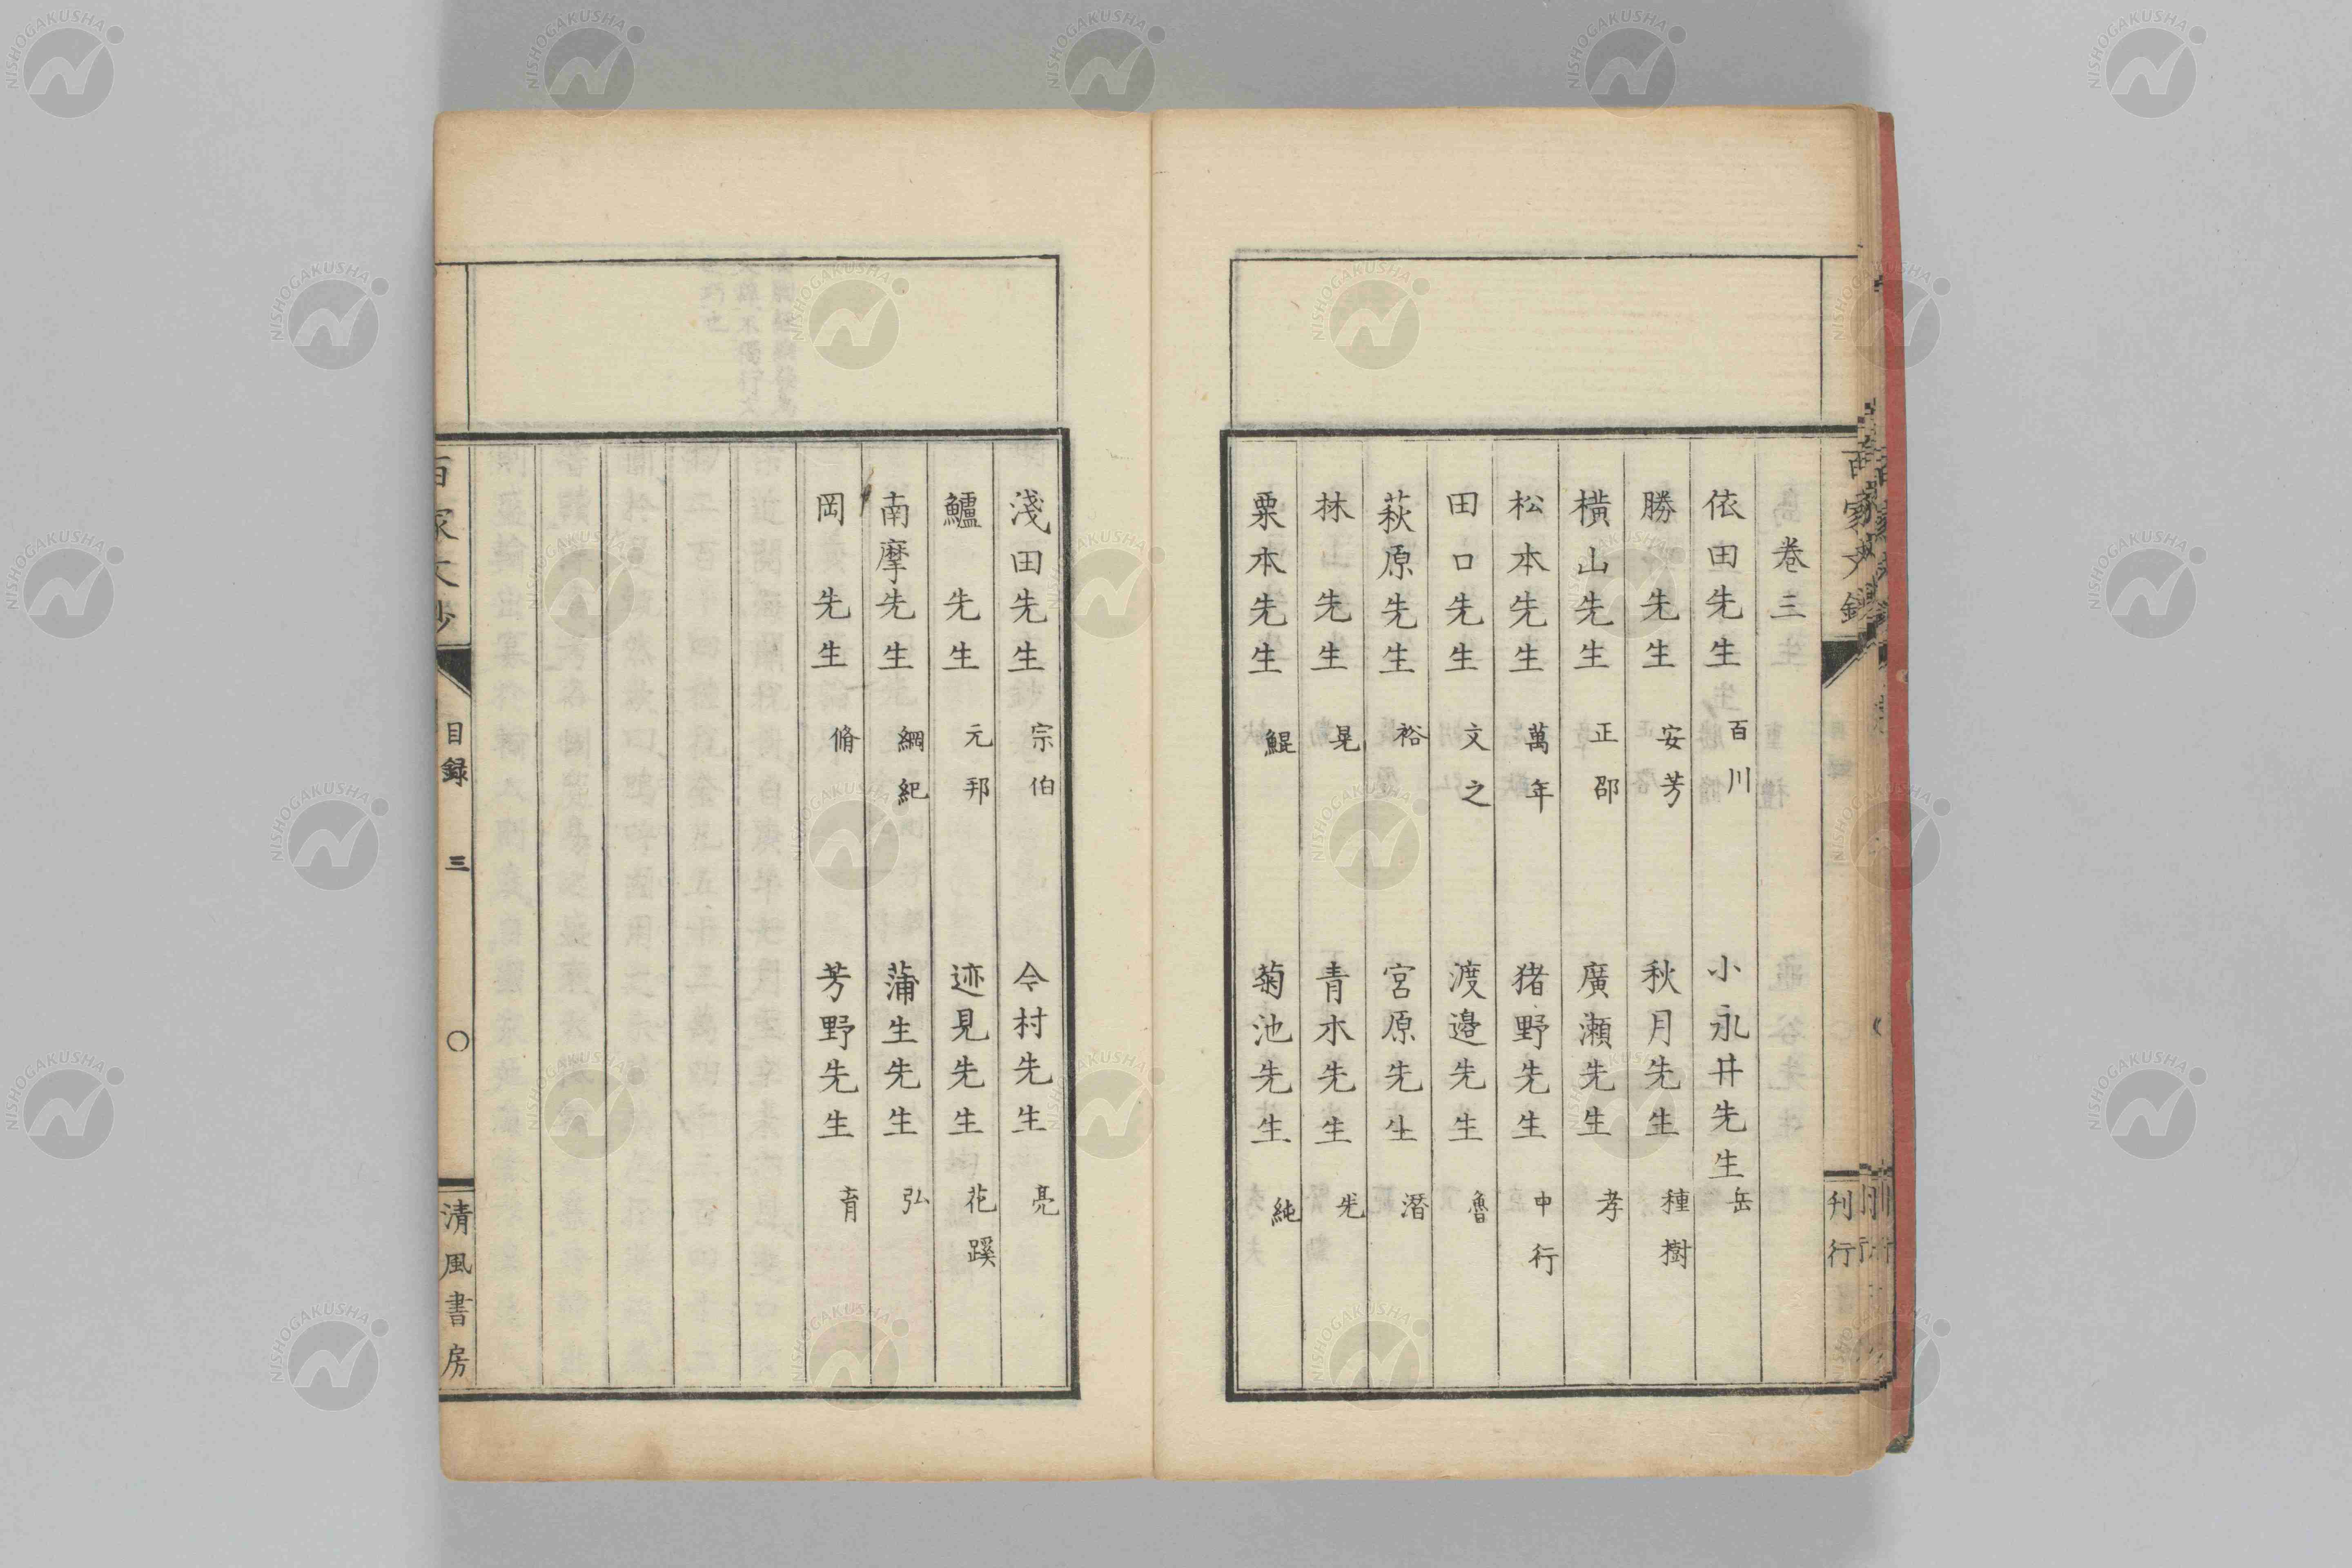 卷三
依田先生 百川 小永井先生 岳
勝 先生 安芳 秋月先生 種樹
橫山先生 正邵 廣瀨先生 孝
松本先生 萬年 猪野先生 中行
田口先生 文之 渡邉先生 魯
萩原先生 裕 宮原先生 潛
林 先生 晃 青木先生
栗本先生 鯤 菊池先生 純
刊行
淺田先生 宗伯 今村先生 亮
鱸 先生 元邦 迹見先生 花蹊
南摩先生 綱紀 蒲生先生 弘
岡 先生 脩 芳野先生 育
百家文鈔 目錄 三 〇 清風書房
NISHOGAKUSHA